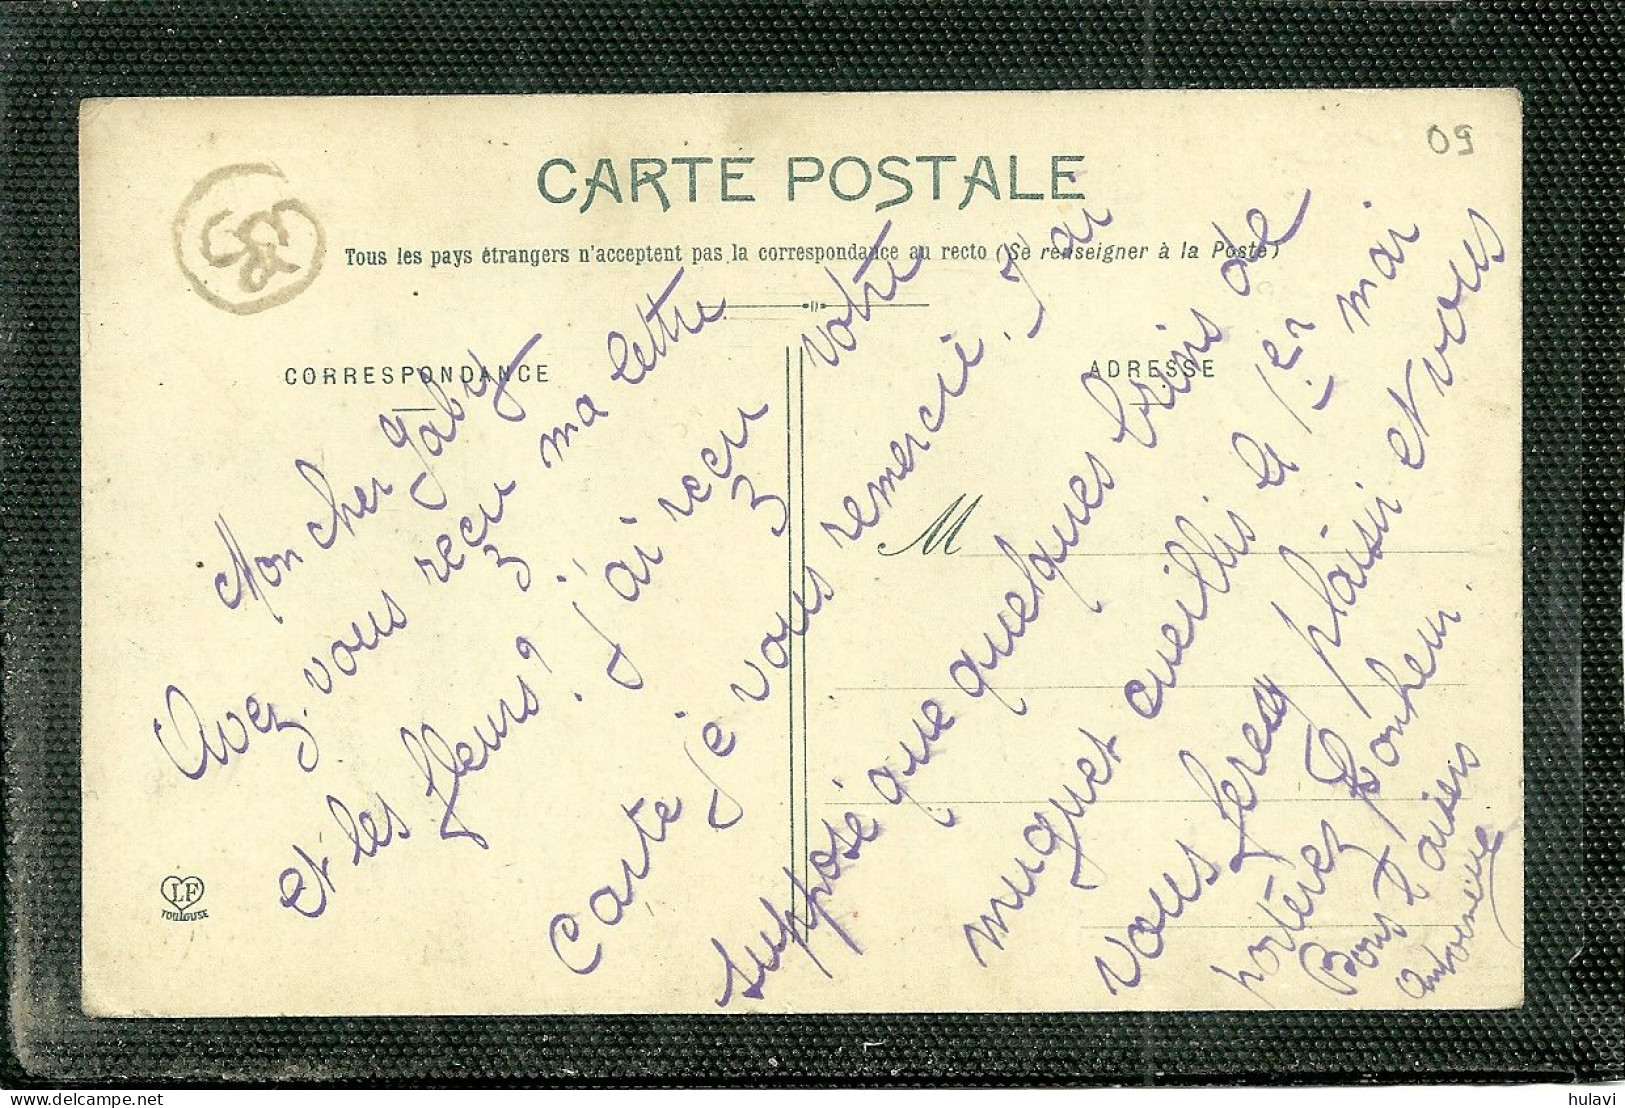 09
CARTE POSTALE
Tous les pays étrangers n'acceptent pas la correspondance au recto (Se renseigner à la Poste)
CORRESPONDANCE
ADRESSE
M
Mon cher Gaby
Avez vous reçu ma lettre
et les fleurs? j'ai reçu votre
carte je vous remercie. J'ai
supposé que quelques brins de
muguet cueillis le 1er mai
vous ferez plaisir et vous
portérez bonheur.
Bons baisers
Antoinette
LF
TOULOUSE
hulavi